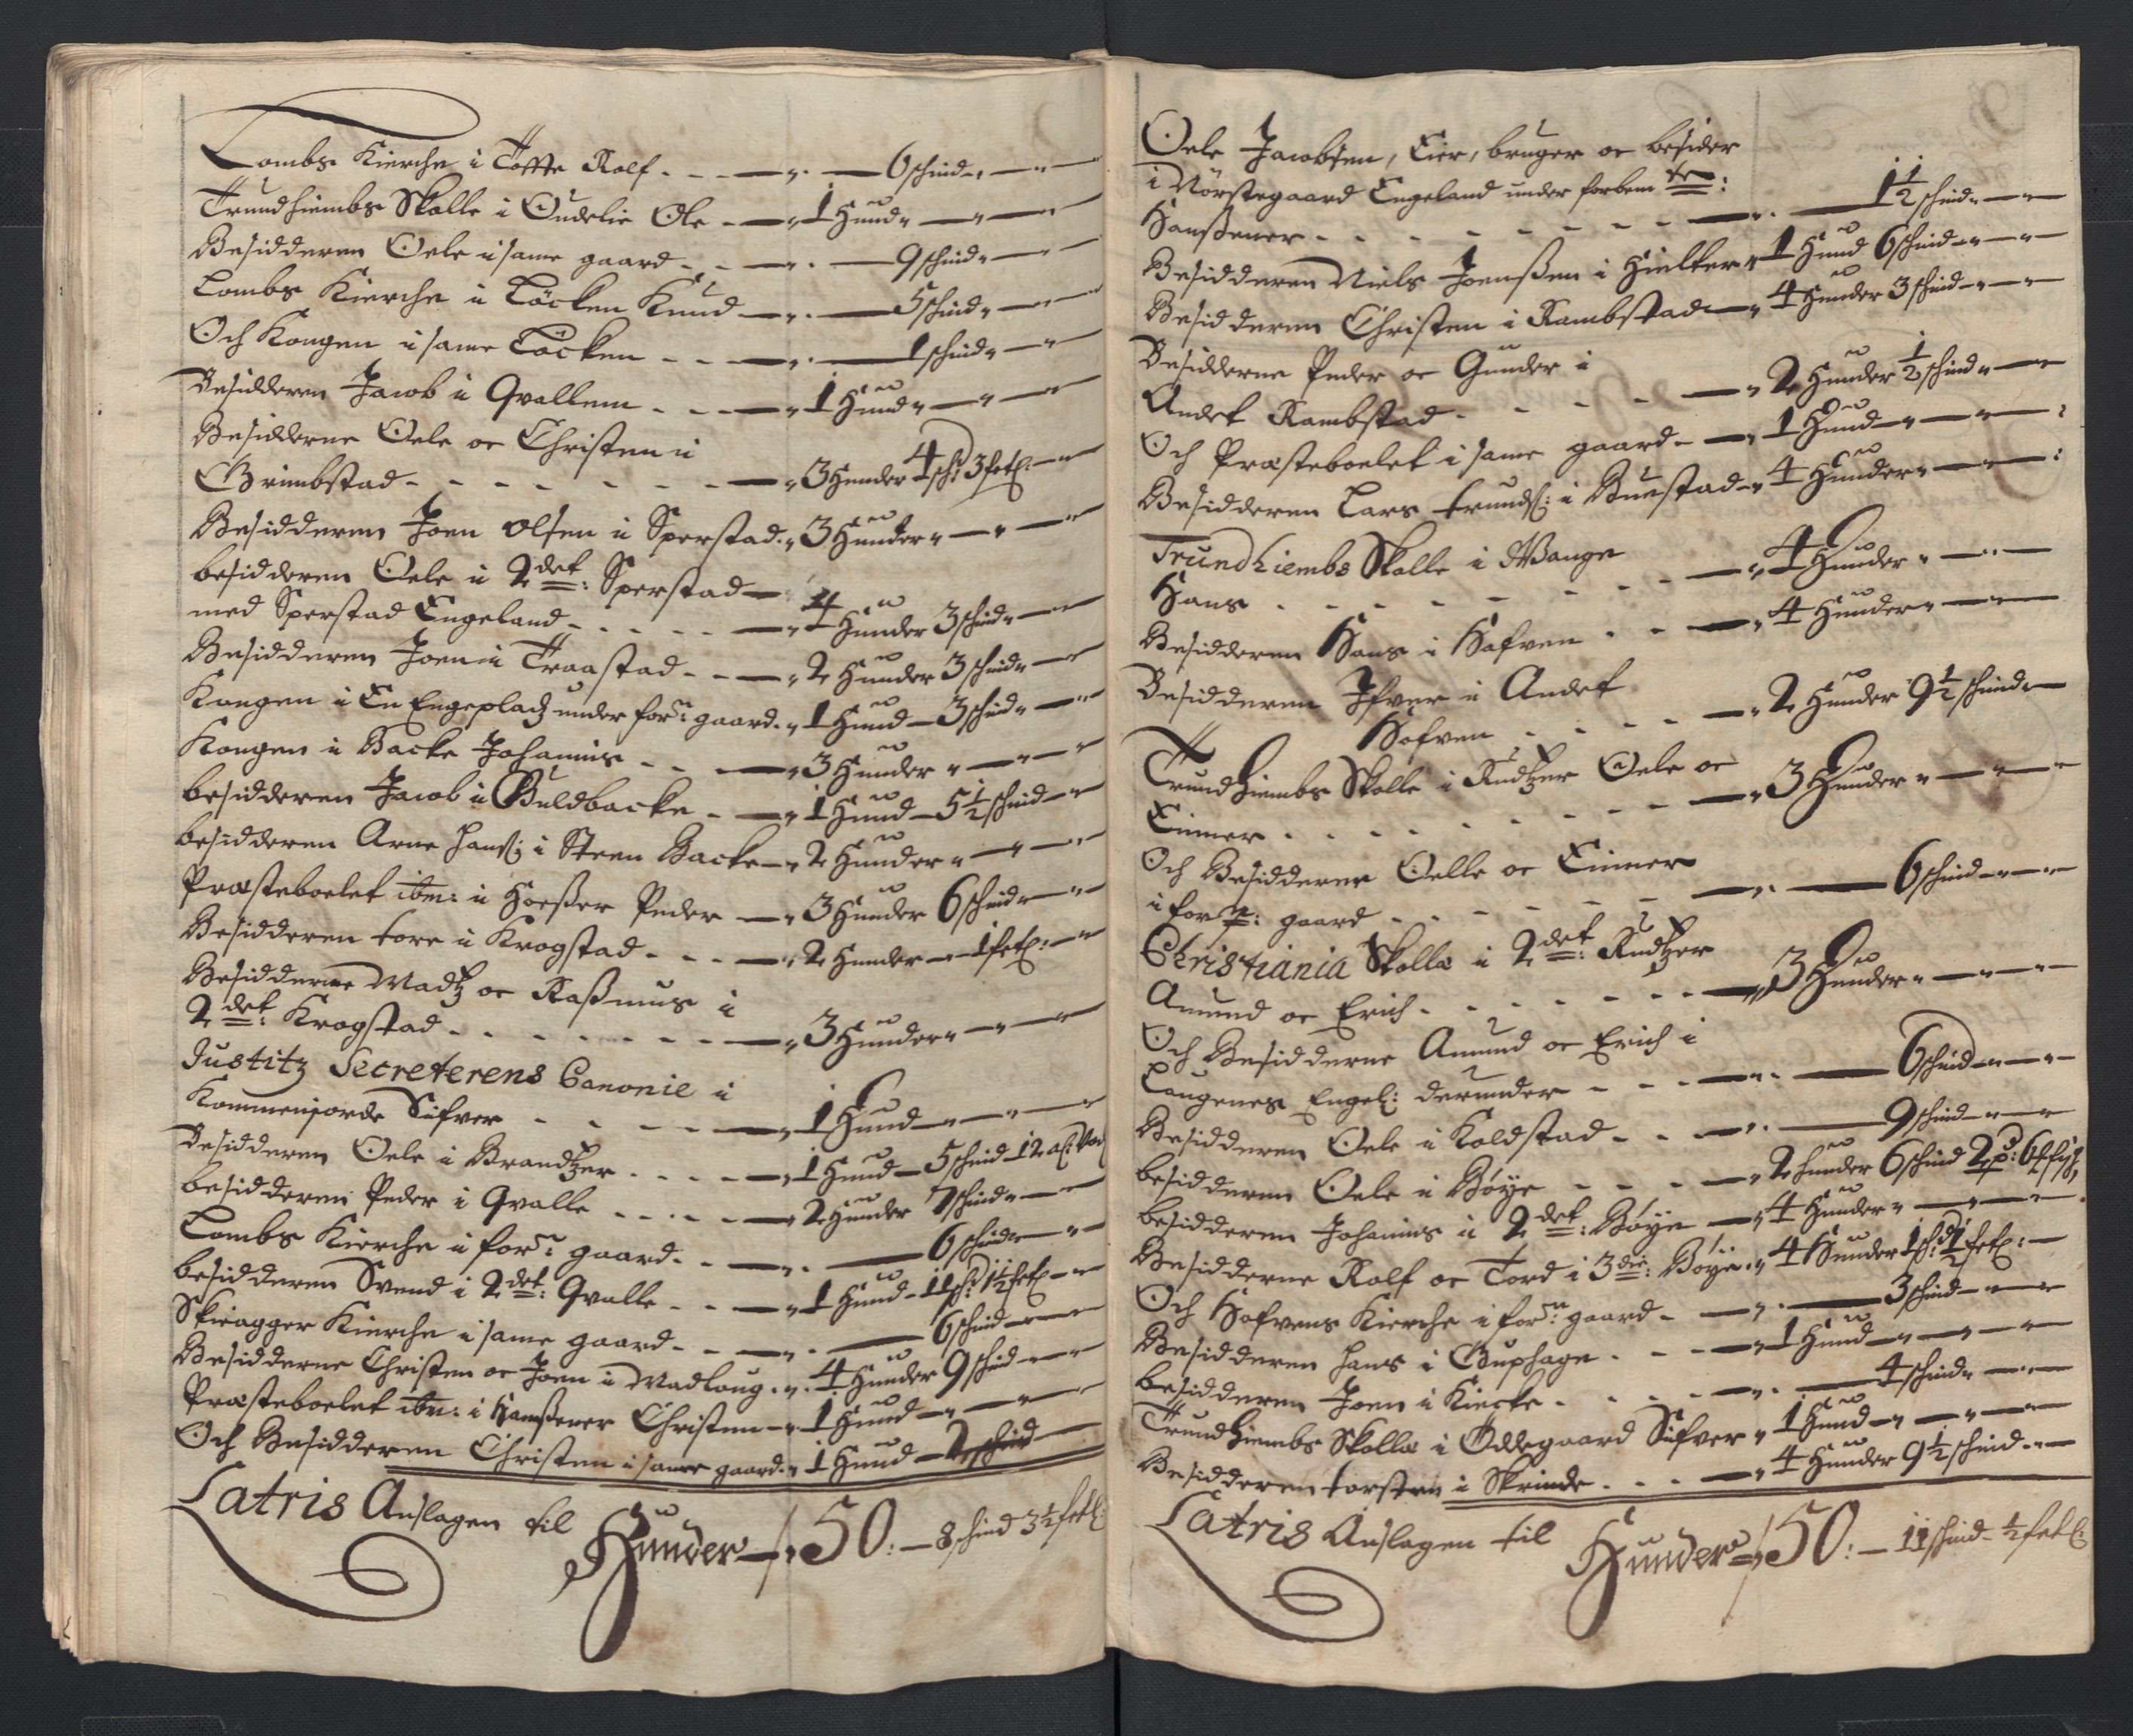 Lombs Kierche i Toffte Rolf - - - 6 schind
Trundhiembs Skolle i Oudelie Ole - 1 Hund
Besidderen Oele i same gaard - - - 9 schind
Lombs Kierche i Löcken Knud - - 5 schind
Och Kongen i same Löcken - - - 1 schind
Besidderen Jacob i Qvallem - - - 1 Hund
Besidderne Oele oc Christen i
Grimbstad - - - - - - 3 Hunder 4 sch: 3 fetl:
Besidderen Joen Olsen i Sperstad - 3 Hunder
besidderen Oele i 2det: Sperstad
med Sperstad Engeland - - - - 4 Hunder 3 schind
Besidderen Joen i Traastad - - - 2 Hunder 3 schind
Kongen i En Engepladz under forn: gaard - 1 Hund - 3 schind
Kongen i Backe Johannis - - 3 Hunder
besidderen Jacob i Guldbacke - - 1 Hund - 5½ schind
besidderen Arne Hanß: i Steen Backe - 2 Hunder
Præsteboelet ibm: i Hoeßer Peder - 3 Hunder 6 schind
Besidderen Tore i Krogstad - - - 2 Hunder - 1 fetl:
Besidderne Madtz oc Raßmus i
2det: Krogstad - - - - - - 3 Hunder
Justitz Secreterens Canonie i
Kommenjorde Sifver - - - - 1 Hund
Besidderen Oele i Brandtzer - - - - 1 Hund - 5 schind 12 al: Vad
besidderen Peder i Qvalle - - - - 2 Hunder 7 schind
Lombs Kierche i forn: gaard - - - 6 schind
besidderen Svend i 2det: Qvalle - - - 1 Hund - 11 sch: 1½ fetl
Skieagger Kierche i same gaard - - - 6 schind
Besidderne Christen oc Joen i Madloug - 4 Hunder 9 schind
Præsteboelet ibm: i Hanßener Christen - 1 Hund
Och Besidderen Christen i same gaard - 1 Hund - 2 schind
Latris Anslagen til Hunder - 50: - 8 schind 3½ fetl:
Oele Jacobsen, Eier, bruger oc besider
i Nörstegaard Engeland under forbem te:
Hanßener - - - - - - - 1½ schind
Besidderen Niels Joenßen i Hielter 1 Hund 6 schind
Besidderen Christen i Rambstad - 4 Hunder 3 schind
Besidderne Peder oc Gunder i
Andet Rambstad - - - - - 2 Hunder ½ schind
Och Præsteboelet i same gaard - 1 Hund
Besidderen Lars Trundß: i Buestad - 4 Hunder
Trundhiembs Skolle i Wange
Hans - - - - - - - 4 Hunder
Besidderen Hans i Hafven - - - 4 Hunder
Besidderen Ifver i Andet
Hofven - - - - 2 Hunder 9½ schind
Trundhiembs Skolle i Rudtzer Oele oc
Einner - - - - - - - 3 Hunder
Och Besidderne Oelle oc Einner
i forn: gaard - - - - - - 6 schind
Christiania Skolle i 2det: Rudtzer
Amund oc Erich - - - - - - 3 Hunder
Och Besidderne Amund oc Erich i
Laugenes Engel: derunder - - - 6 schind
Besidderen Oele i Koldstad - - - 9 schind
besidderen Oele i Böye - - - - 2 hunder 6 schind
besidderen Johannis i 2det: Böye - 4 Hunder
Besidderne Rolf oc Tord i 3die: Böye - 4 Hunder 1 sch: ½ fetl:
Och Hofvens Kierche i forn: gaard - - 3 schind
Besidderen Hans i Guphage - - - 1 Hund
besidderen Joen i Kiercke - - - - 4 schind
Trundhiembs Skolle i Öddegaard Sifver 1 Hund
Besidderen Torsten i Skrinde - - - 4 Hunder 9½ schind
Latris Anslagen til Hunder 50: - 11 schind - ½ fetl: